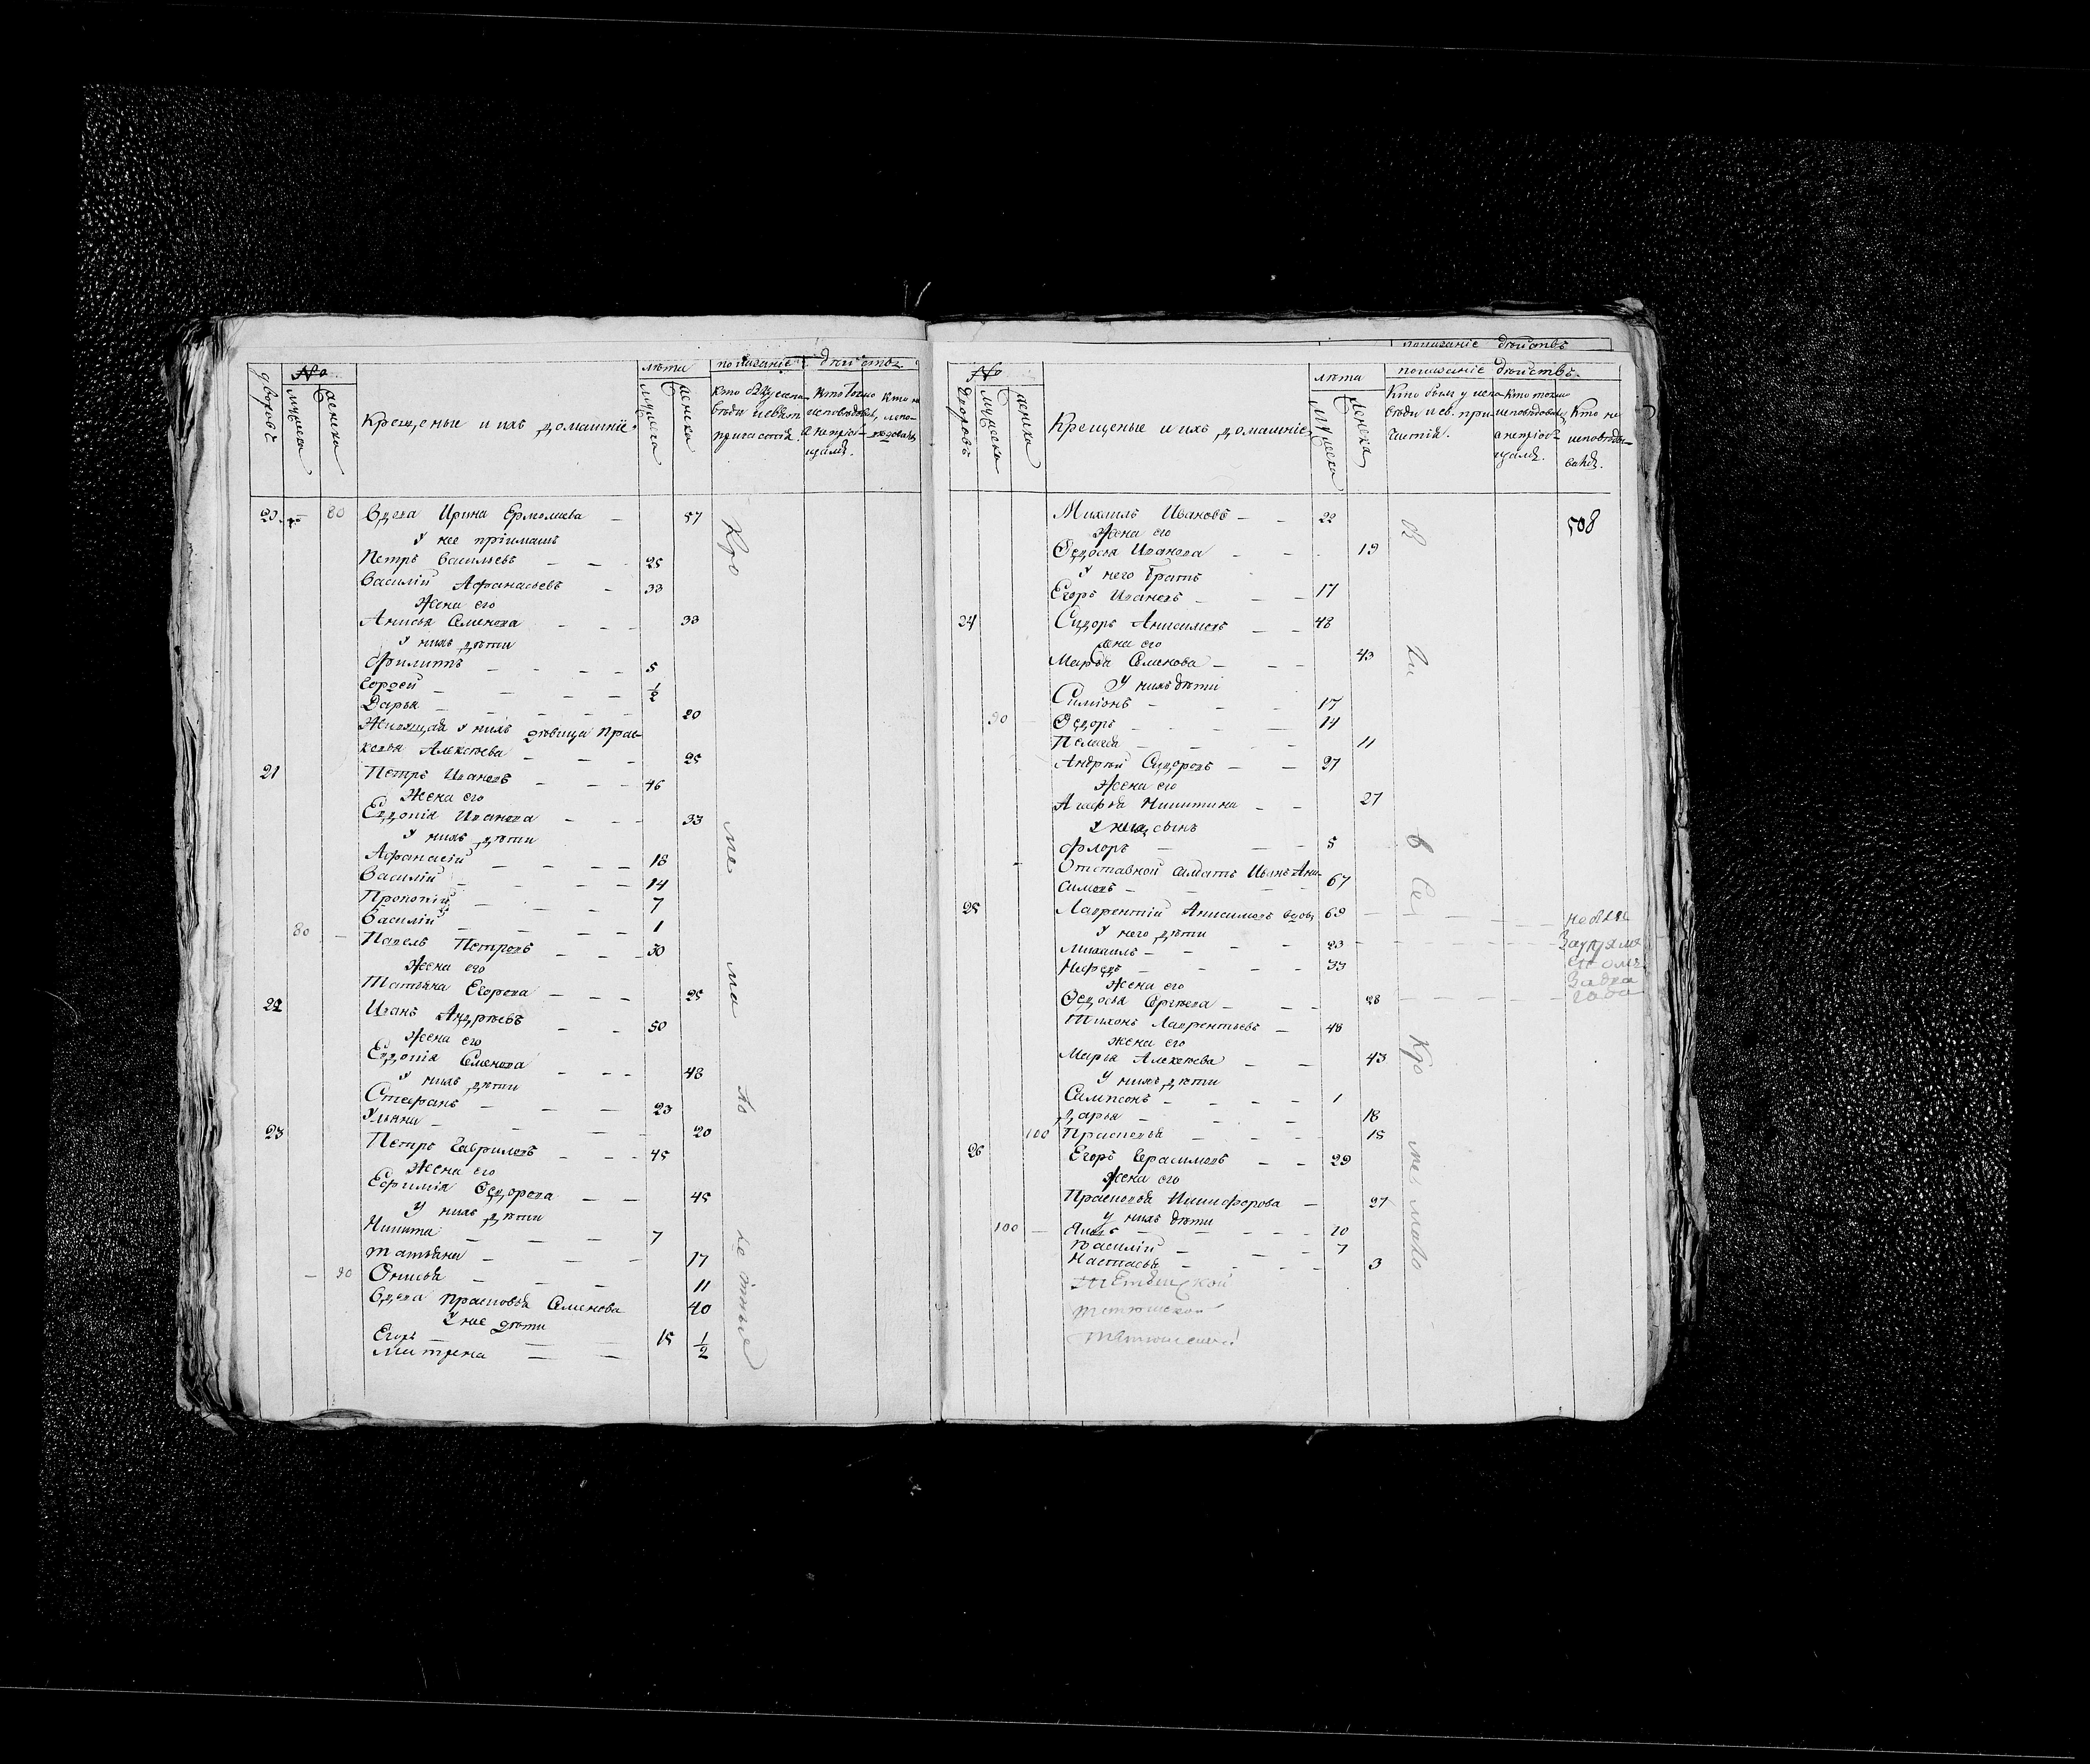 №
лѣта
показаніе действъ
дворовъ
мужеска
женска
Крещеные и ихъ домашніе
мужеска
женска
Кто былъ у испо-
вѣди и свят
причастія.
Кто токмо
исповѣдовалъ,
а не пріоб-
щался.
Кто не
испо-
ведовалъ
20 80 Вдова Ирина Ермолаева — 57
У нее пріимышъ
Петръ Васильевъ — — 25
Василій Афанасьевъ — 33
Жена его
Анисья Семенова — — 33
У нихъ дѣти
Филиппъ — — — 5
Сергей — — — 1/2
Дарья — — — 20
Живущая у нихъ девица Прас-
ковья Алексѣева — — — 25
21 Петръ Ивановъ — — — 46
Жена его
Евдокія Иванова — — — 33
У нихъ дѣти
Афанасій — — — — 18
Василій — — — — 14
Прокопій — — — 7
Василій — — — — 1
80 — Павелъ Петровъ — — — 30
Жена его
Татьяна Егорова — — — 25
22 Иванъ Андреевъ — — — 50
Жена его
Евдокія Семенова — — — 48
У нихъ дѣти
Стефанъ — — — 23
Ульяна — — — 20
23 Петръ Гавриловъ — — — 45
Жена его
Ефимія Ѳедорова — — 45
У нихъ дѣти
Никита — — — 7
Татьяна — — 17
— 90 Онисья — — — 11
Вдова Прасковья Семенова 40
У нее дѣти
Егоръ — — 15
Матрена — — 1/2
Кро ме ма ло ле тные
показаніе действъ
№
лѣта
показаніе действъ.
Дворовъ
мужеска
женска
Крещеные и ихъ домашніе
мужеска
женска
Кто былъ у испо-
вѣди и св. при-
частія.
Кто токмо
исповѣдовалъ,
а не пріоб-
щался.
Кто не
исповѣды-
вался.
508
Михаилъ Ивановъ — — 22
Жена его
Ѳедосья Иванова — — — 19
У него братъ
Егоръ Ивановъ — — — 17
24 Сидоръ Анисимовъ — — 48
Жена его
Марѳа Семенова — — — 43
У нихъ дѣти
Симіонъ — — — 17
90 — Ѳедоръ — — — — 14
Пелагея — — — — 11
Андрей Сидоровъ — — 27
Жена его
Агафья Никитина — — 27
У нихъ сынъ
Флоръ — — — 5
Отставной салдатъ Иванъ Ани-
симовъ — — — — 67
25 Лаврентій Анисимовъ вдовъ 69
У него дѣти
Михаилъ — — — — 23
Нефедъ — — — — 33
Жена его
Ѳедосья Сергѣева — — — 28
Тихонъ Лаврентьевъ — 48
жена его
Марья Алексѣева — — 43
У нихъ дѣти
Сампсонъ — — — — 1
Дарья — — — — 18
100 Прасковья — — — — 15
26 Егоръ Герасимовъ — — 29
Жена его
Прасковья Никифорова — 27
У нихъ дѣти
100 — Яковъ — — — — 10
Василій — — — 7
Настасья — — — — 3
тетюшской